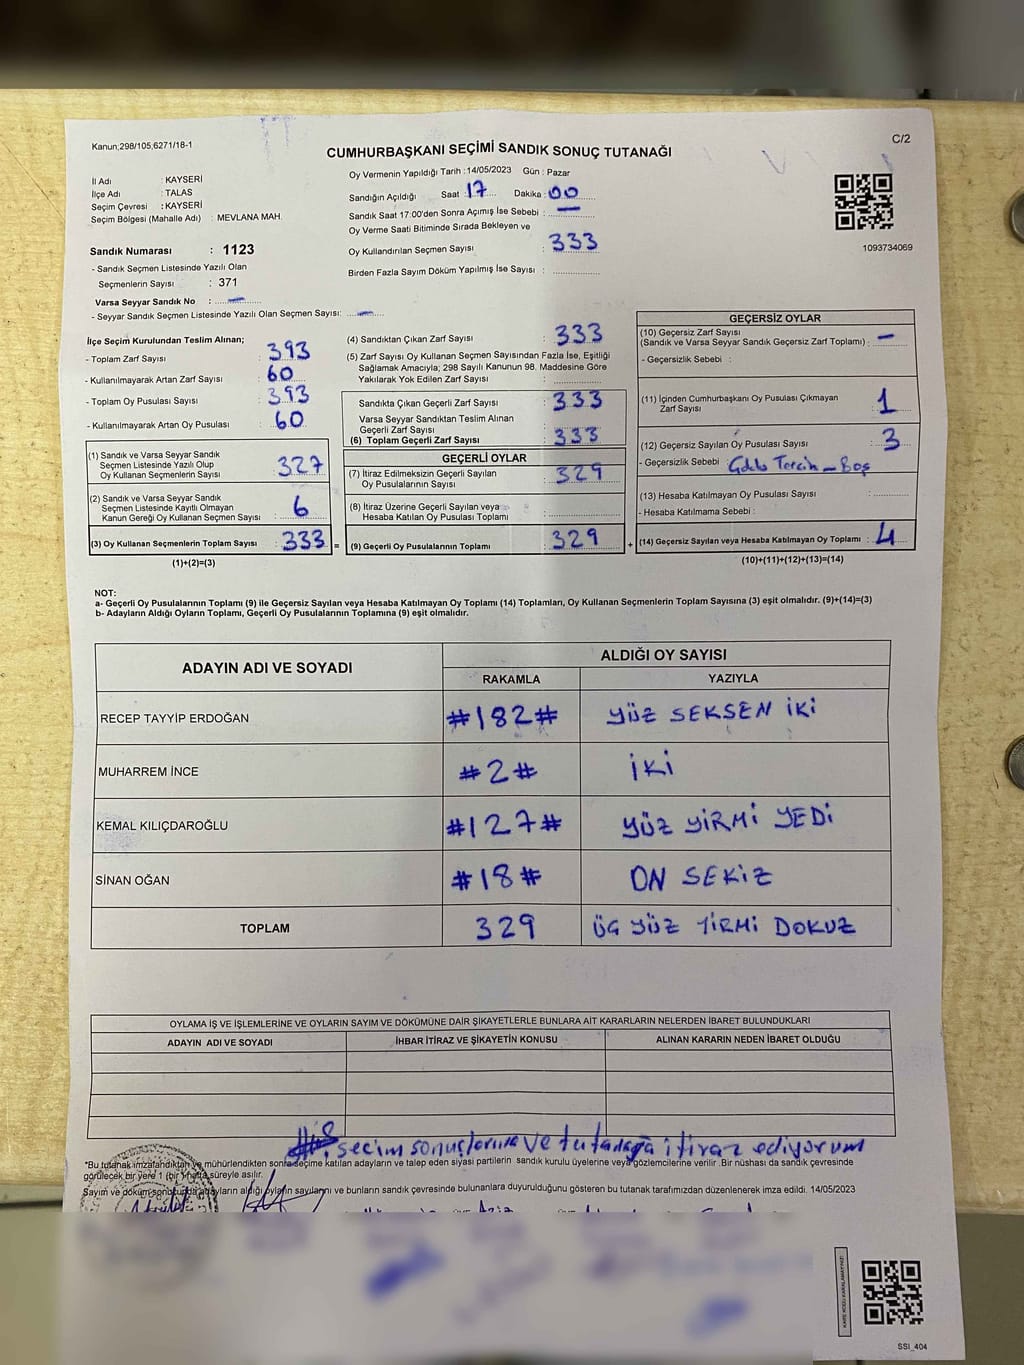 Kanun;298/105,6271/18-1
C/2
CUMHURBAŞKANI SEÇİMİ SANDIK SONUÇ TUTANAĞI
İl Adı : KAYSERİ
İlçe Adı : TALAS
Seçim Çevresi : KAYSERİ
Seçim Bölgesi (Mahalle Adı) : MEVLANA MAH.
Oy Vermenin Yapıldığı Tarih :14/05/2023 Gün : Pazar
Sandığın Açıldığı Saat : 17 Dakika : 00
Sandık Saat 17.00'den Sonra Açımış İse Sebebi : —
Oy Verme Saati Bitiminde Sırada Bekleyen ve
Oy Kullandırılan Seçmen Sayısı : 333
Birden Fazla Sayım Döküm Yapılmış İse Sayısı :
1093734069
Sandık Numarası : 1123
- Sandık Seçmen Listesinde Yazılı Olan
Seçmenlerin Sayısı : 371
Varsa Seyyar Sandık No : —
- Seyyar Sandık Seçmen Listesinde Yazılı Olan Seçmen Sayısı: —
İlçe Seçim Kurulundan Teslim Alınan;
- Toplam Zarf Sayısı : 393
- Kullanılmayarak Artan Zarf Sayısı : 60
- Toplam Oy Pusulası Sayısı : 393
- Kullanılmayarak Artan Oy Pusulası : 60
(1) Sandık ve Varsa Seyyar Sandık
Seçmen Listesinde Yazılı Olup
Oy Kullanan Seçmenlerin Sayısı : 327
(2) Sandık ve Varsa Seyyar Sandık
Seçmen Listesinde Kayıtlı Olmayan
Kanun Gereği Oy Kullanan Seçmen Sayısı : 6
(3) Oy Kullanan Seçmenlerin Toplam Sayısı : 333 =
(1)+(2)=(3)
(4) Sandıktan Çıkan Zarf Sayısı : 333
(5) Zarf Sayısı Oy Kullanan Seçmen Sayısından Fazla İse, Eşitliği
Sağlamak Amacıyla; 298 Sayılı Kanunun 98. Maddesine Göre
Yakılarak Yok Edilen Zarf Sayısı :
Sandıkta Çıkan Geçerli Zarf Sayısı : 333
Varsa Seyyar Sandıktan Teslim Alınan
Geçerli Zarf Sayısı
(6) Toplam Geçerli Zarf Sayısı : 333
GEÇERLİ OYLAR
(7) İtiraz Edilmeksizin Geçerli Sayılan
Oy Pusulalarının Sayısı : 329
(8) İtiraz Üzerine Geçerli Sayılan veya
Hesaba Katılan Oy Pusulası Toplamı :
(9) Geçerli Oy Pusulalarının Toplamı : 329 +
GEÇERSİZ OYLAR
(10) Geçersiz Zarf Sayısı
(Sandık ve Varsa Seyyar Sandık Geçersiz Zarf Toplamı) : —
- Geçersizlik Sebebi :
(11) İçinden Cumhurbaşkanı Oy Pusulası Çıkmayan
Zarf Sayısı : 1
(12) Geçersiz Sayılan Oy Pusulası Sayısı : 3
- Geçersizlik Sebebi : Tercih - Boş
(13) Hesaba Katılmayan Oy Pusulası Sayısı :
- Hesaba Katılmama Sebebi :
(14) Geçersiz Sayılan veya Hesaba Katılmayan Oy Toplamı : 4
(10)+(11)+(12)+(13)=(14)
NOT:
a- Geçerli Oy Pusulalarının Toplamı (9) ile Geçersiz Sayılan veya Hesaba Katılmayan Oy Toplamı (14) Toplamları, Oy Kullanan Seçmenlerin Toplam Sayısına (3) eşit olmalıdır. (9)+(14)=(3)
b- Adayların Aldığı Oyların Toplamı, Geçerli Oy Pusulalarının Toplamına (9) eşit olmalıdır.
ADAYIN ADI VE SOYADI
ALDIĞI OY SAYISI
RAKAMLA YAZIYLA
RECEP TAYYİP ERDOĞAN #182# YÜZ SEKSEN İKİ
MUHARREM İNCE #2# İKİ
KEMAL KILIÇDAROĞLU #127# YÜZ YİRMİ YEDİ
SİNAN OĞAN #18# ON SEKİZ
TOPLAM 329 ÜÇ YÜZ YİRMİ DOKUZ
OYLAMA İŞ VE İŞLEMLERİNE VE OYLARIN SAYIM VE DÖKÜMÜNE DAİR ŞİKAYETLERLE BUNLARA AİT KARARLARIN NELERDEN İBARET BULUNDUKLARI
ADAYIN ADI VE SOYADI İHBAR İTİRAZ VE ŞİKAYETİN KONUSU ALINAN KARARIN NEDEN İBARET OLDUĞU
seçim sonuçlarına ve tutanağa itiraz ediyorum
*Bu tutanak imzalandıktan ve mühürlendikten sonra seçime katılan adayların ve talep eden siyasi partilerin sandık kurulu üyelerine veya gözlemcilerine verilir .Bir nüshası da sandık çevresinde
görülecek bir yere 1 (bir ) hafta süreyle asılır.
Sayım ve döküm sonucunda adayların aldığı oyların sayılarını ve bunların sandık çevresinde bulunanlara duyurulduğunu gösteren bu tutanak tarafımızdan düzenlenerek imza edildi. 14/05/2023
SSI_404